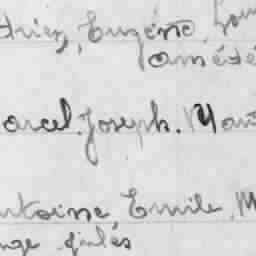 drien, Eugène, Lou
amédé
arcel. Joseph. Mar
ntoine Emile, M
nge Jules